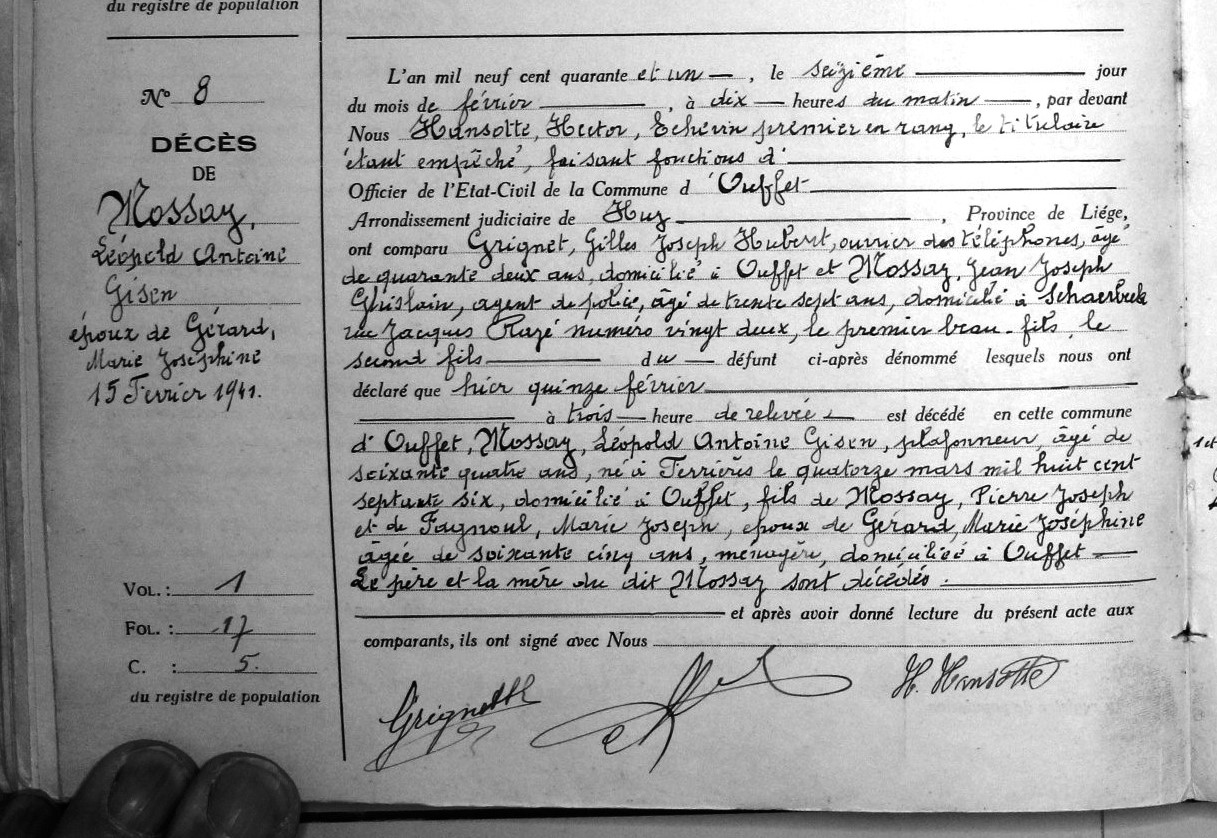 du registre de population
N° 8
DÉCÈS
DE
Mossay,
Léopold Antoine
Gisen
époux de Gérard,
Marie Joséphine
15 Fevrier 1941.
VOL. : 1
FOL. : 17
C. : 5.
du registre de population
L'an mil neuf cent quarante et un, le seizième jour
du mois de février, à dix heures du matin, par devant
Nous Hansotte, Hector, Echevin premier en rang, le titulaire
étant empêché, faisant fonctions d'
Officier de l'Etat-Civil de la Commune d'Ouffet
Arrondissement judiciaire de Huy, Province de Liége,
ont comparu Grignet, Gilles Joseph Hubert, ouvrier des téléphones, âgé
de quarante deux ans, domicilié à Ouffet et Mossay, Jean Joseph
Ghislain, agent de police, âgé de trente sept ans, domicilié à Schaerbeek
rue Jacques numéro vingt deux, le premier beau-fils, le
second fils du défunt ci-après dénommé lesquels nous ont
déclaré que hier quinze février
à trois heure de relevée est décédé en cette commune
d'Ouffet, Mossay, Léopold Antoine Gisen, plafonneur, âgé de
soixante quatre ans, né à Ferrières le quatorze mars mil huit cent
septante six, domicilié à Ouffet, fils de Mossay, Pierre Joseph
et de Fagnoul, Marie Joseph, époux de Gérard, Marie Joséphine
âgée de soixante cinq ans, ménagère, domiciliée à Ouffet
Le père et la mère du dit Mossay sont décédés.
et après avoir donné lecture du présent acte aux
comparants, ils ont signé avec Nous
Grignet H. Hansotte